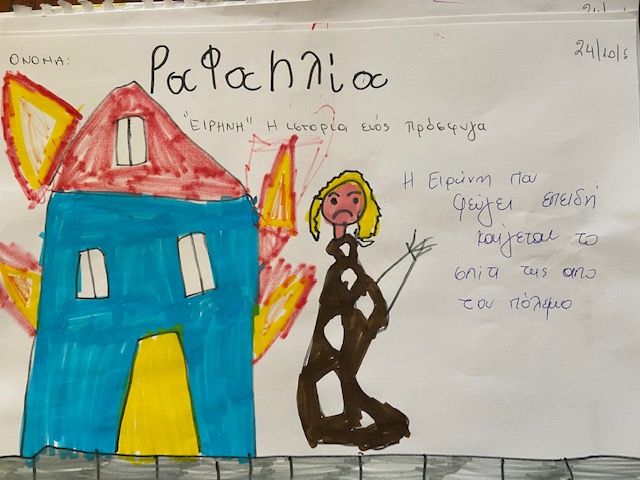 ΟΝΟΜΑ:
ΡαΦαηλία
24/10/
"ΕΙΡΗΝΗ" Η ιστορία ενός πρόσφυγα
Η Ειρήνη που
φεύγει επειδή
καίγεται το
σπίτι της απο
τον πόλεμο